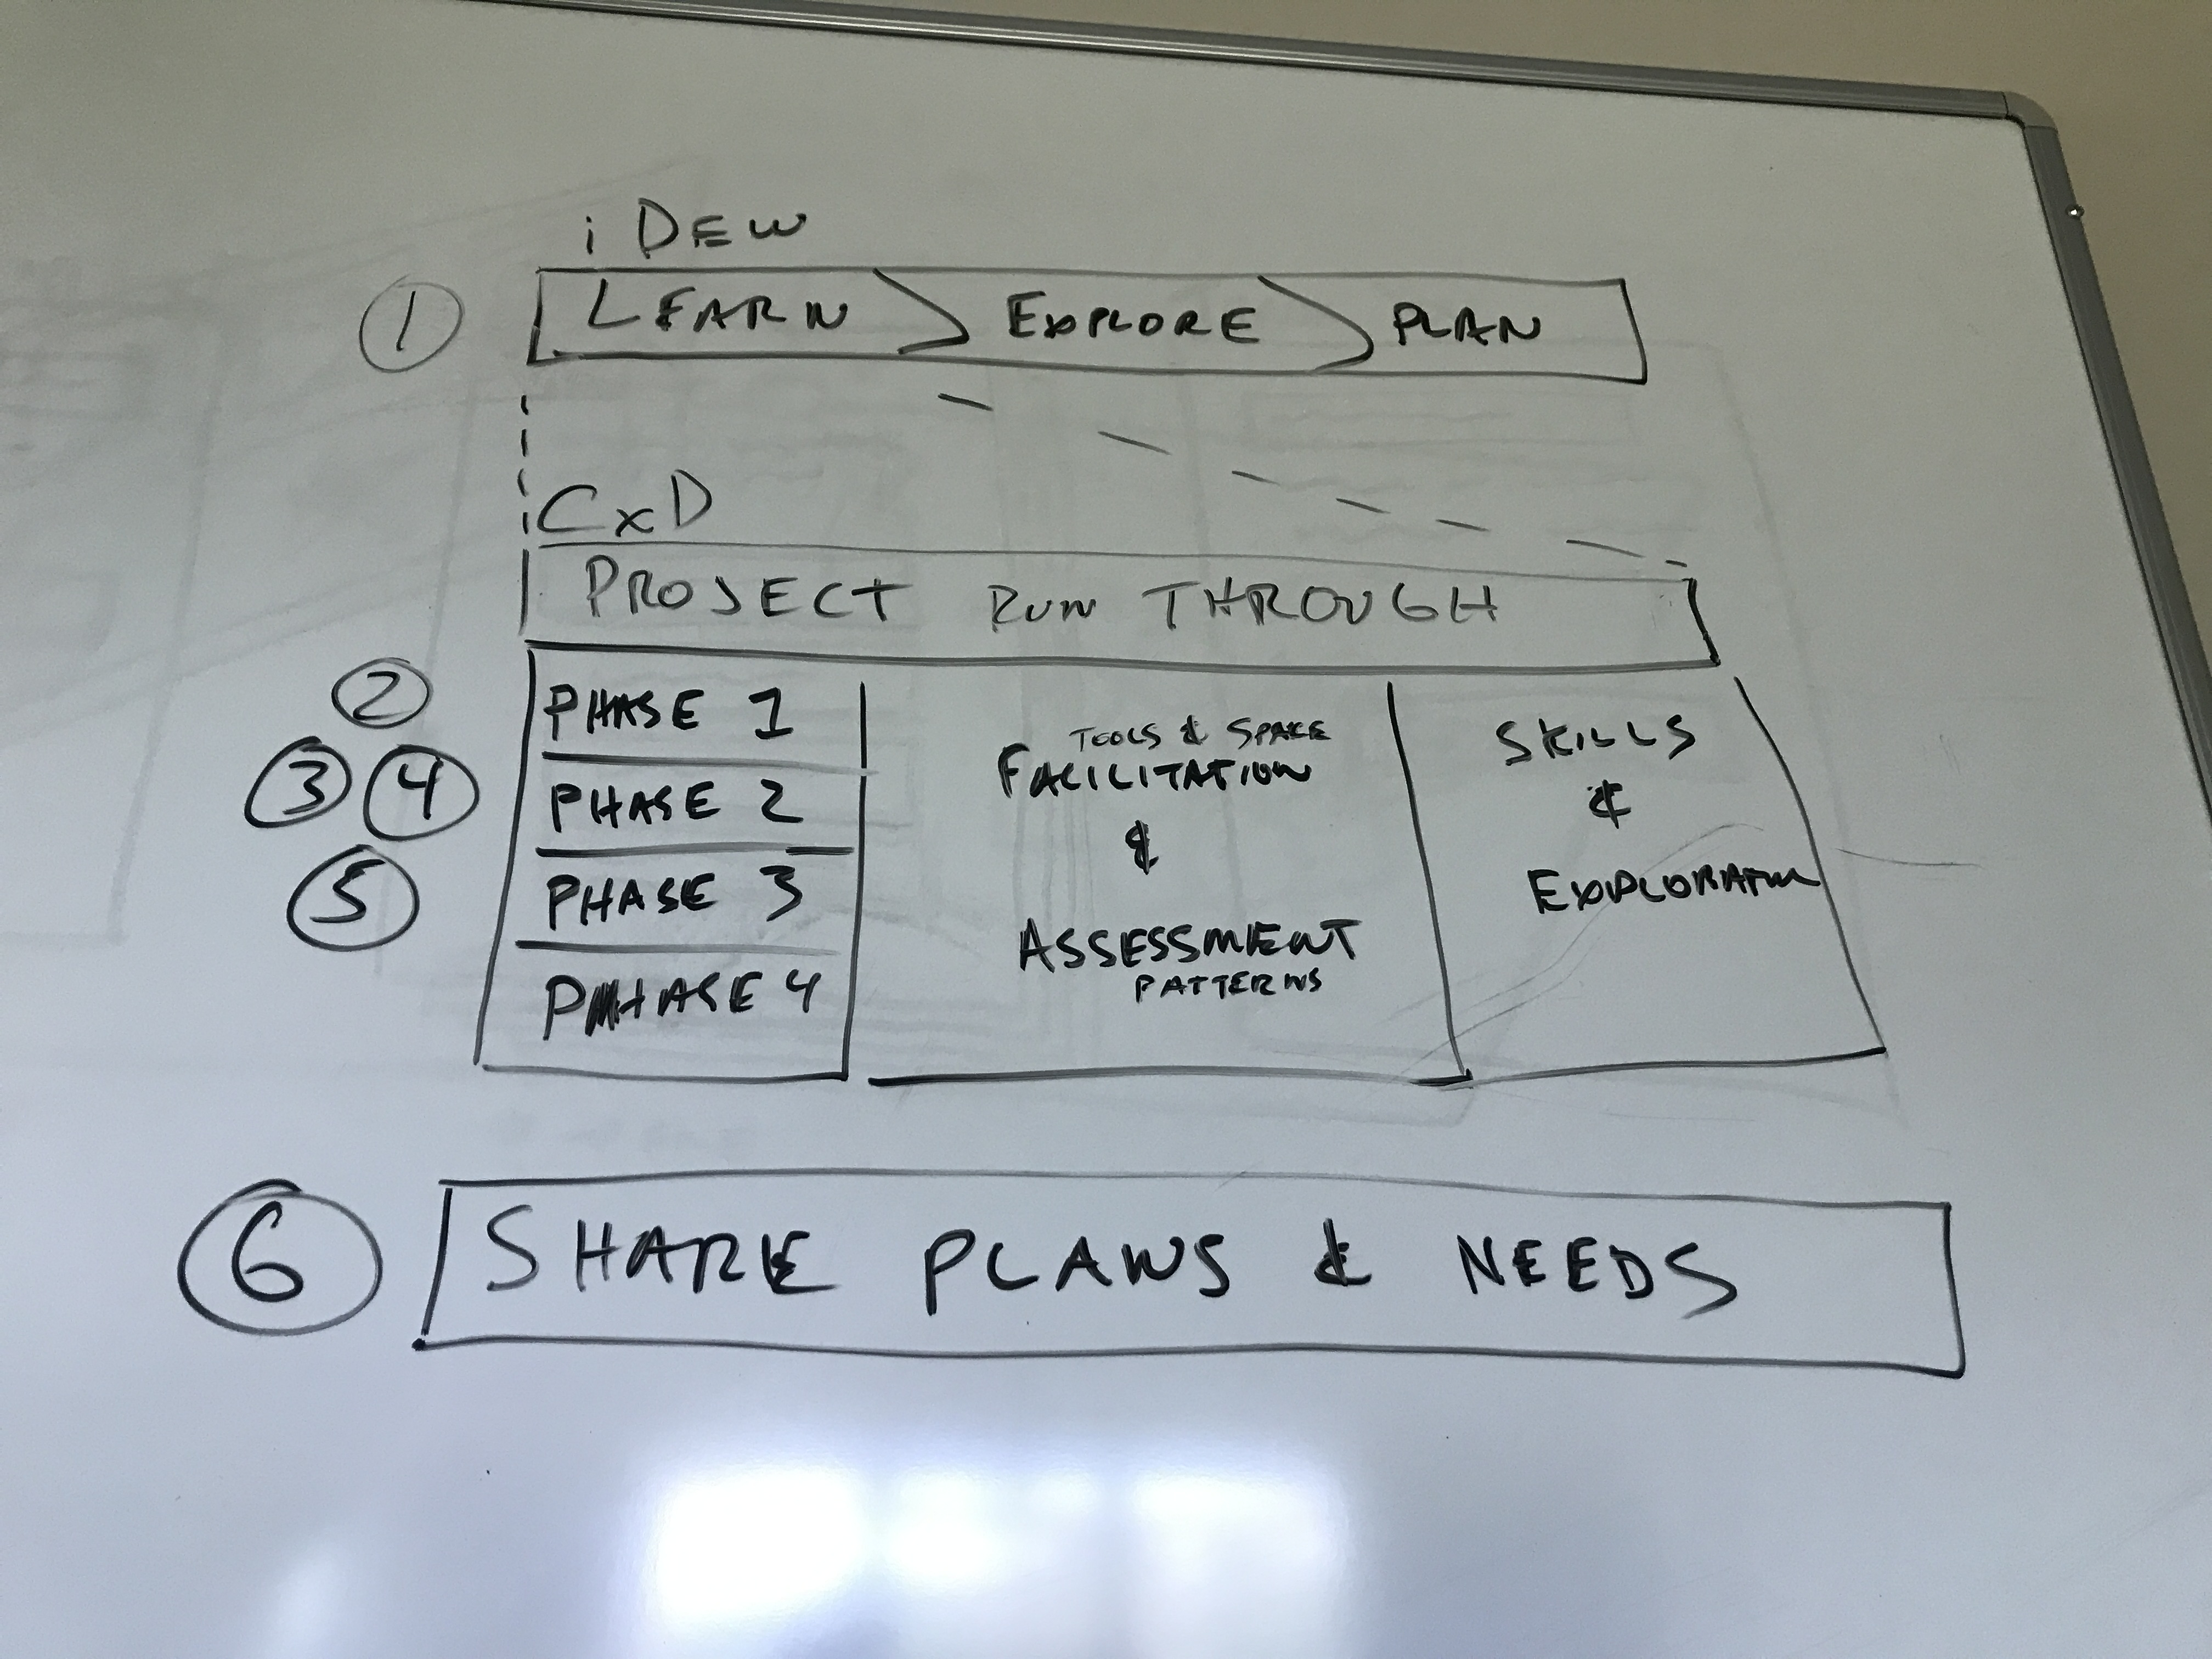 i DEW
1 LEARN EXPLORE PLAN
CxD
PROJECT RUN THROUGH
2 PHASE 1
3 4 PHASE 2
5 PHASE 3
PHASE 4
TOOLS & SPACE
FACILITATION
&
ASSESSMENT
PATTERNS
SKILLS
&
EXPLORATION
6 SHARE PLANS & NEEDS